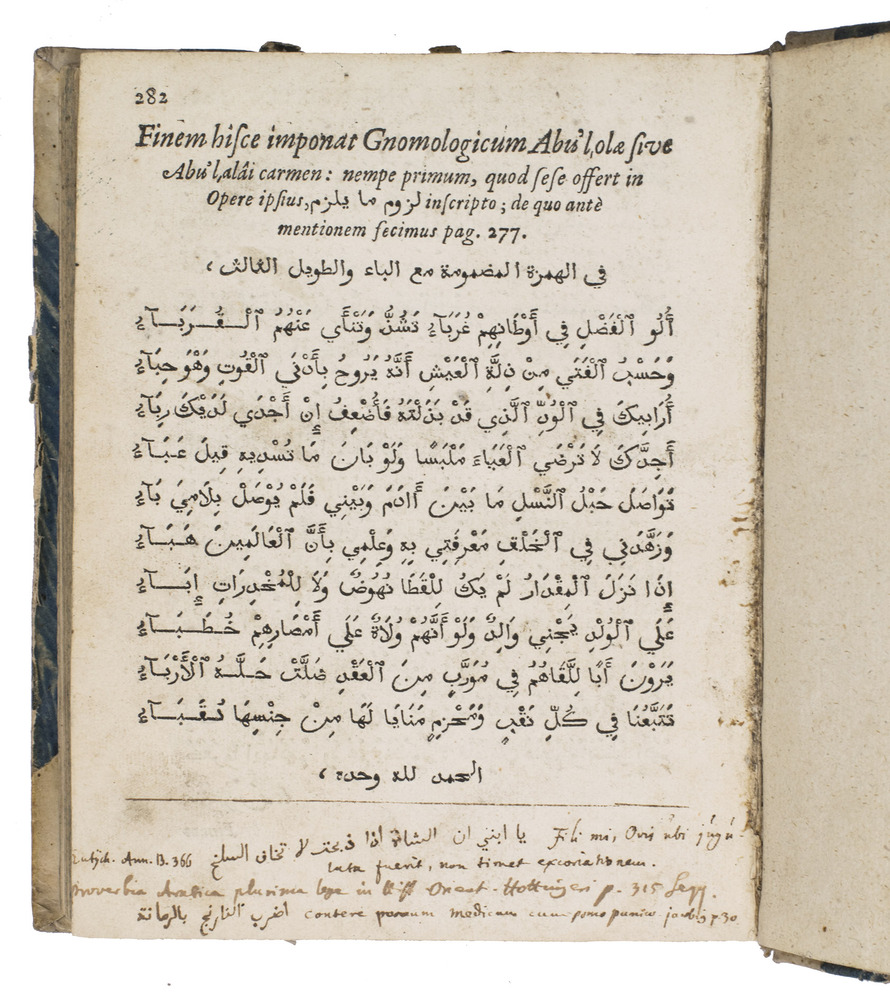 282
Finem hiſce imponat Gnomologicum Abu'l,olæ ſive
Abu'l,alâi carmen: nempe primum, quod ſeſe offert in
Opere ipſius, لزوم ما يلزم inſcripto; de quo antè
mentionem fecimus pag. 277.
في الهمزة المضمومة مع الباء والطويل الثالث،
أُلُو ٱلْفَضْلِ فِي أَوْطَانِهِمْ غُرَبَآءُ تَشُذُّ وَتَنْأَي عَنْهُمُ ٱلْقُرَبَآءُ
وَحَسْبُ ٱلْفَتَي مِنْ ذِلَّةِ ٱلْعَيْشِ أَنَّهُ يَرُوحُ بِأَدْنَي ٱلْقُوتِ وَهْوَ حِبَآءُ
أُرَابِيكَ فِي ٱلْوُدِّ ٱلَّذِي قَدْ بَذَلْتَهُ فَأُضْعِفُ إِنْ أَجْدَي لَدَيْكَ رِبَآءُ
أَجِدَّكَ لَا تَرْضَي ٱلْعَبَاءَ مَلْبَسًا وَلَوْ بَانَ مَا تُسْدِيهِ قِيلَ عَبَآءُ
تَوَاصَلَ حَبْلُ ٱلنَّسْلِ مَا بَيْنَ أَادَمَ وَبَيْنِي فَلَمْ يُوْصَلْ بِلَامِيَ بَآءُ
وَزَهَّدَنِي فِي ٱلْخَلْقِ مَعْرِفَتِي بِهِ وَعِلْمِي بِأَنَّ ٱلْعَالَمِينَ هَبَآءُ
إِذَا نَزَلَ ٱلْمِقْدَارُ لَمْ يَكُ لِلْقَطَا نُهُوضٌ وَلَا لِلْمُخْدِرَاتِ إِبَآءُ
عَلَي ٱلْوُلْدِ يَجْنِي وَالِدٌ وَلَوْ أَنَّهُمْ وُلَاةٌ عَلَي أَمْصَارِهِمْ خُطَبَآءُ
يَرَوْنَ أَبًا لِلَّقَاهُمُ فِي مُوَرَّبٍ مِنَ ٱلْعَقْدِ ضَلَّتْ حَلَّهُ ٱلْأُرَبَآءُ
تَتَبَّعُنَا فِي كُلِّ نَقْبٍ وَمَخْرِمٍ مَنَايَا لَهَا مِنْ جِنْسِهَا نُقَبَآءُ
الحمد لله وحده،
يا ابني ان الشاة اذا ذبحت لا تخاف السلخ Fili mi, Ovis ubi jugu-
Eutych. Ann. B. 366 lata fuerit, non timet excoriationem.
Proverbia Arabica plurima lege in Orient. Hottingeri p. 315 seqq.
اضرب النارنج بالرمانة contere pomum medicum cum pomo punico